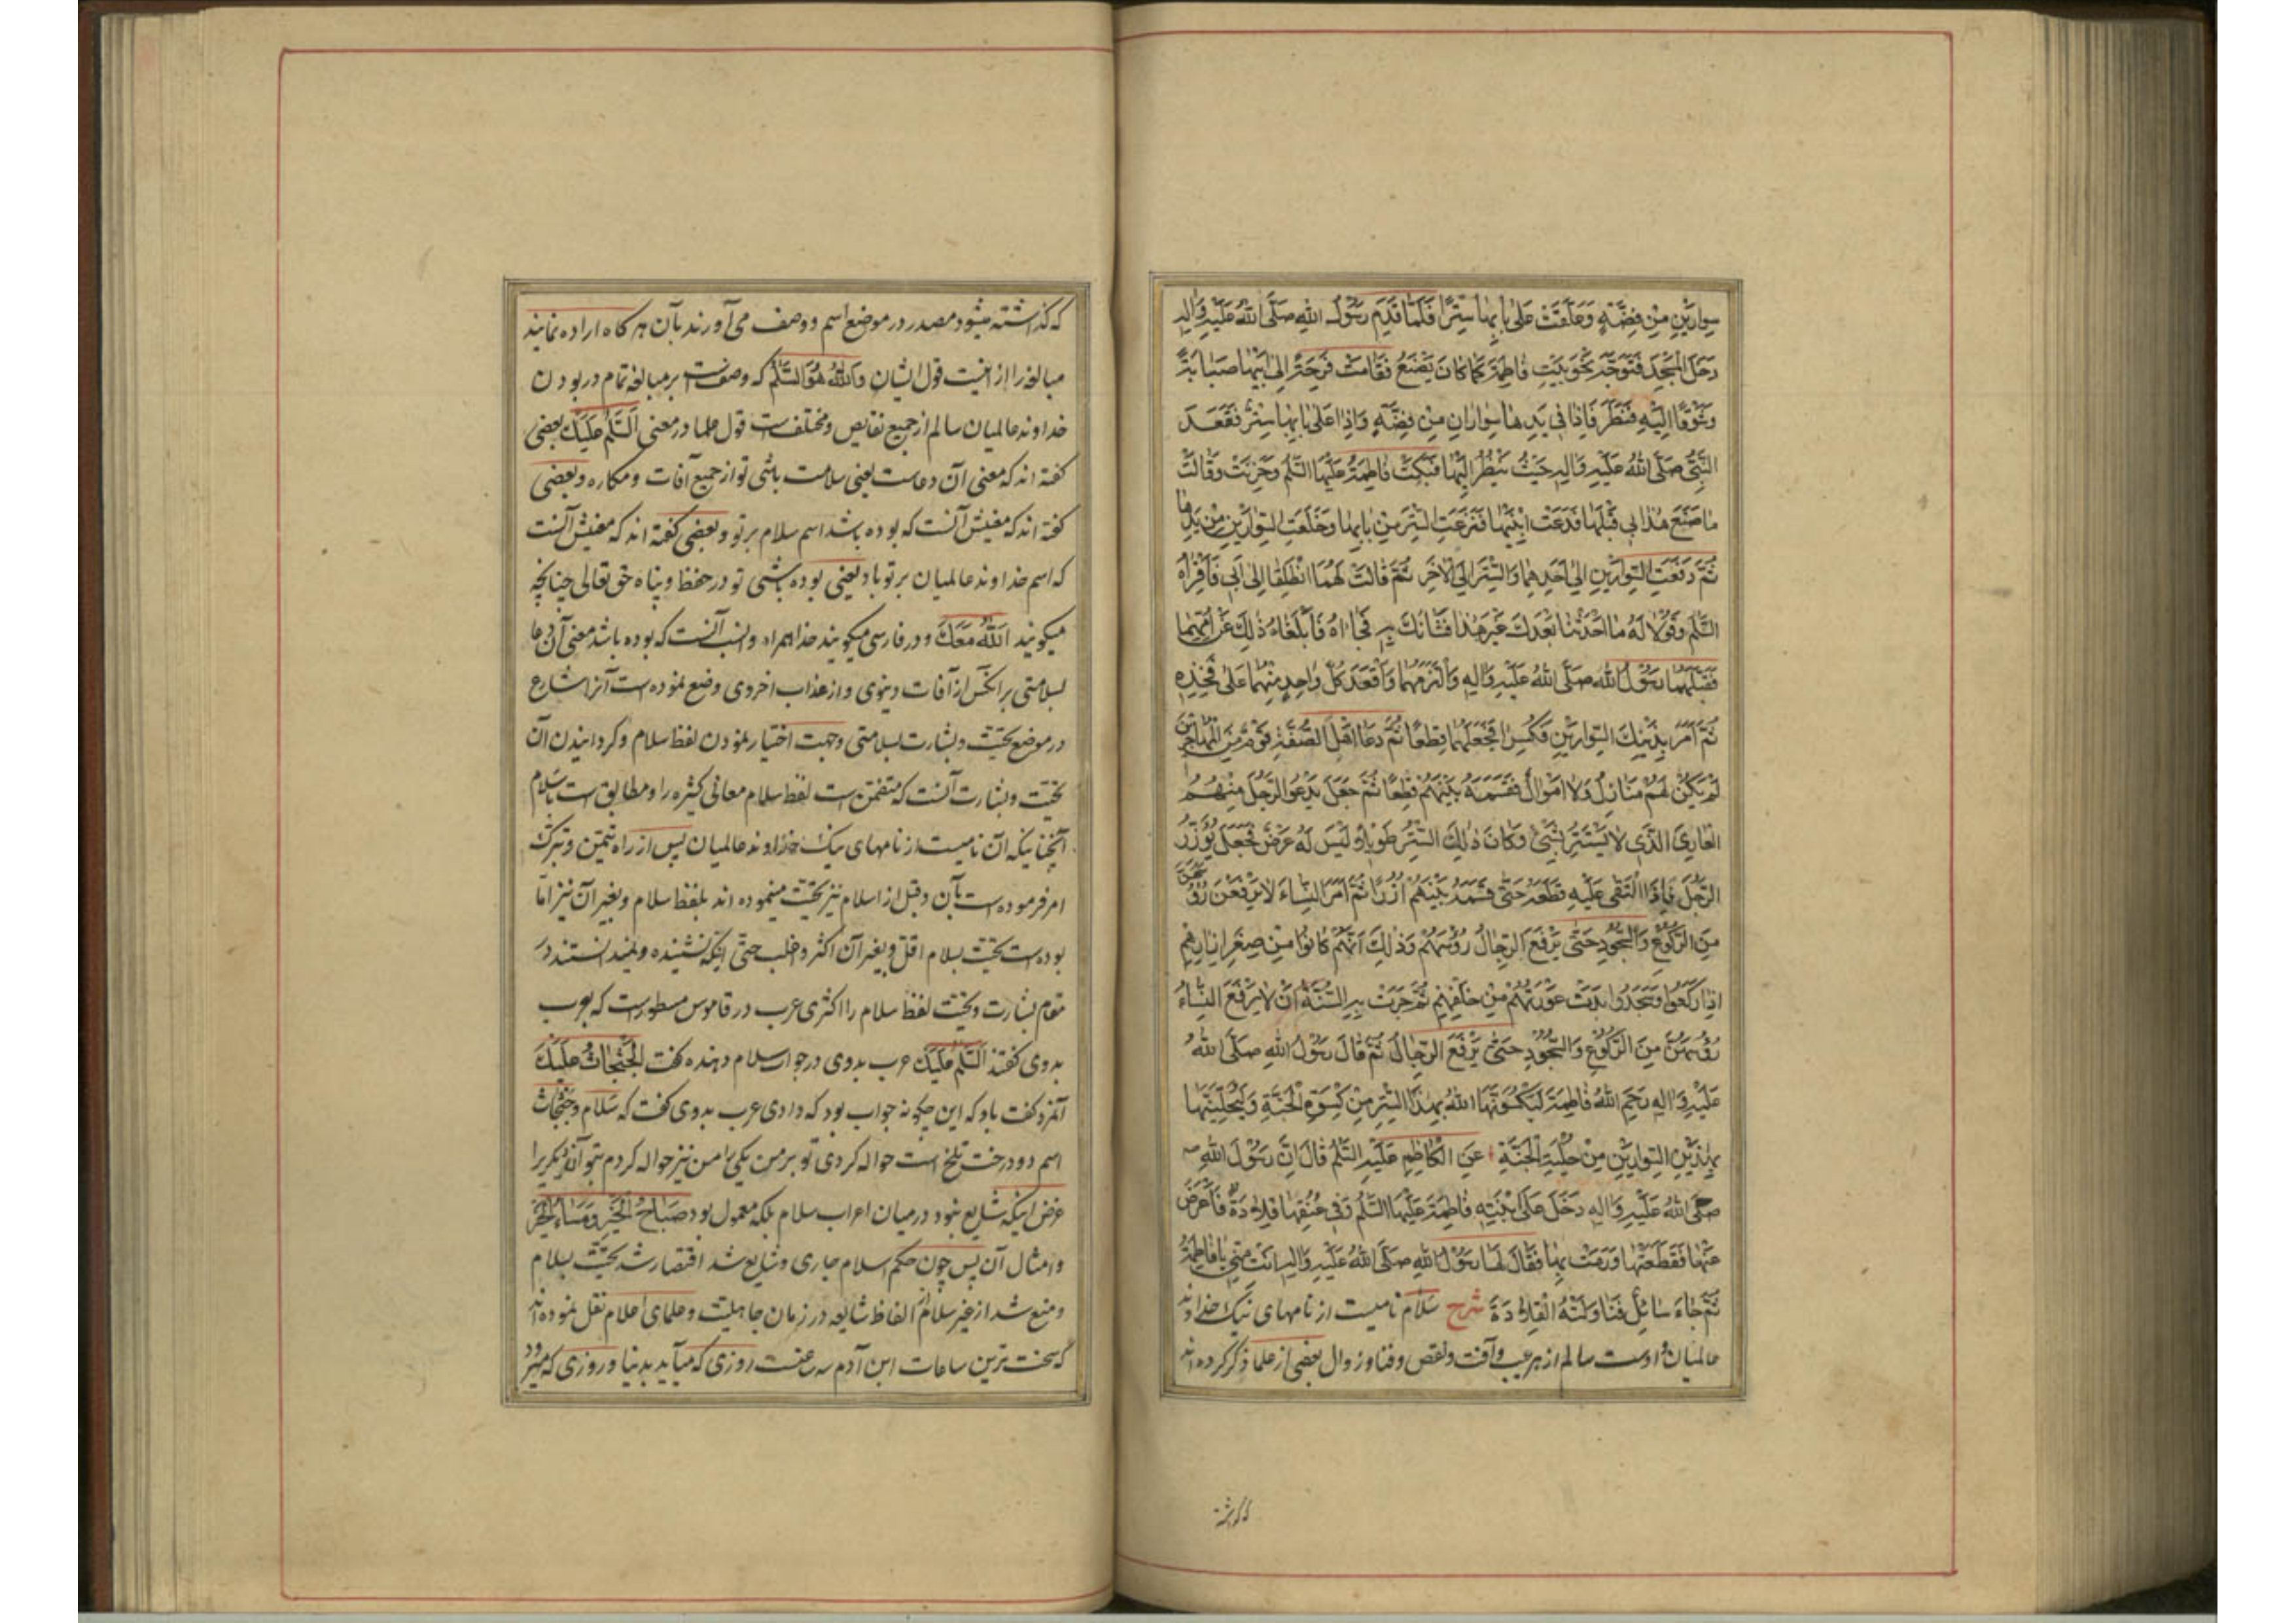 سِوارَیْنِ مِنْ فِضَّةٍ وَعَلَّقَتْ عَلیٰ بابِها سِتْرًا فَلَمّا قَدِمَ رَسُولُ اللهِ صَلَّی اللهُ عَلَیْهِ وَالِهِ
دَخَلَ المَسْجِدَ فَتَوَجَّهَ نَحْوَ بَیْتِ فاطِمَةَ کَما کانَ یَصْنَعُ فَقامَتْ فَرِحَةً اِلیٰ اَبیها صَبابَةً
وَشَوْقًا اِلَیْهِ فَنَظَرَ فَاِذا فی یَدِها سِوارانِ مِنْ فِضَّةٍ وَاِذا عَلیٰ بابِها سِتْرٌ فَقَعَدَ
النَّبِیُّ صَلَّی اللهُ عَلَیْهِ وَالِهِ حَیْثُ یَنْظُرُ اِلَیْها فَبَکَتْ فاطِمَةُ عَلَیْهَا السَّلٰمُ وَحَزِنَتْ وَقالَتْ
ما صَنَعَ هٰذا بی قَبْلَها فَدَعَتْ ابْنَیْها فَنَزَعَتِ السِّتْرَ مِنْ بابِها وَخَلَعَتِ السِّوارَیْنِ مِنْ یَدِها
ثُمَّ دَفَعَتِ السِّوارَیْنِ اِلیٰ اَحَدِهِما وَالسِّتْرَ اِلَی الْاٰخَرِ ثُمَّ قالَتْ لَهُمَا انْطَلِقا اِلیٰ اَبی فَاَقْرِئاهُ
السَّلٰمَ وَقُولا لَهُ ما اَحْدَثْنا بَعْدَكَ غَیْرَ هٰذا فَشَأْنُكَ بِهِ فَجاءاهُ فَاَبْلَغاهُ ذٰلِكَ عَنْ اُمِّهِما
فَقَبَّلَهُما رَسُولُ اللهِ صَلَّی اللهُ عَلَیْهِ وَالِهِ وَالْتَزَمَهُما وَاَقْعَدَ کُلَّ واحِدٍ مِنْهُما عَلیٰ فَخِذِهِ
ثُمَّ اَمَرَ بِذَیْنِكَ السِّوارَیْنِ فَکُسِرا فَجَعَلَهُما قِطَعًا ثُمَّ دَعا اَهْلَ الصُّفَّةِ قَوْمٌ مِنَ الْمُهاجِرینَ
لَمْ یَکُنْ لَهُمْ مَنازِلُ وَلا اَمْوالٌ فَقَسَمَهُ بَیْنَهُمْ قِطَعًا ثُمَّ جَعَلَ یَدْعُو الرَّجُلَ مِنْهُمُ
العارِیَ الَّذی لا یَسْتَتِرُ بِشَیْءٍ وَکانَ ذٰلِكَ السِّتْرُ طَویلاً وَلَیْسَ لَهُ عَرْضٌ فَجَعَلَ یُؤَزِّرُ
الرَّجُلَ فَاِذَا الْتَقیٰ عَلَیْهِ قَطَعَهُ حَتّیٰ قَسَمَهُ بَیْنَهُمْ اُزُرًا ثُمَّ اَمَرَ النِّساءَ لا یَرْفَعْنَ رُؤُسَهُنَّ
مِنَ الرُّکُوعِ وَالسُّجُودِ حَتّیٰ یَرْفَعَ الرِّجالُ رُؤُسَهُمْ وَذٰلِكَ اَنَّهُمْ کانُوا مِنْ صِغَرِ اِزارِهِمْ
اِذا رَکَعُوا وَسَجَدُوا بَدَتْ عَوْرَتُهُمْ مِنْ خَلْفِهِمْ ثُمَّ جَرَتْ بِهِ السُّنَّةُ اَنْ لا یَرْفَعَ النِّساءُ
رُؤُسَهُنَّ مِنَ الرُّکُوعِ وَالسُّجُودِ حَتّیٰ یَرْفَعَ الرِّجالُ ثُمَّ قالَ رَسُولُ اللهِ صَلَّی اللهُ
عَلَیْهِ وَالِهِ رَحِمَ اللهُ فاطِمَةَ لَیَکْسُوَنَّهَا اللهُ بِهٰذَا السِّتْرِ مِنْ کِسْوَةِ الْجَنَّةِ وَلَیُحَلِّیَنَّها
بِهٰذَیْنِ السِّوارَیْنِ مِنْ حِلْیَةِ الْجَنَّةِ عَنِ الْکاظِمِ عَلَیْهِ السَّلٰمُ قالَ اِنَّ رَسُولَ اللهِ
صَلَّی اللهُ عَلَیْهِ وَالِهِ دَخَلَ عَلَی ابْنَتِهِ فاطِمَةَ عَلَیْهَا السَّلٰمُ وَفی عُنُقِها قِلادَةٌ فَاَعْرَضَ
عَنْها فَقَطَعَتْها وَرَمَتْ بِها فَقالَ لَها رَسُولُ اللهِ صَلَّی اللهُ عَلَیْهِ وَالِهِ اَنْتِ مِنّی یا فاطِمَةُ
ثُمَّ جاءَ سائِلٌ فَناوَلَتْهُ الْقِلادَةَ شرح سَلام نامیست از نامهای نیک خداوند
عالمیان و اوست سالم از هر عیب و آفت و نقص و فنا و زوال بعضی از علما ذکر کرده اند
که گذاشته
که گذاشته میشود مصدر در موضع اسم و وصف می آورند بآن هر کاه اراده نمایند
مبالغه را از اینست قول ایشان وَاللهُ هُوَ السَّلٰمُ که وصفست بر مبالغه تمام در بودن
خداوند عالمیان سالم از جمیع نقایص و مختلفست قول علما در معنی اَلسَّلٰمُ عَلَیْكَ بعضی
کفته اند که معنی آن دعاست یعنی سلامت باشی تو از جمیع آفات و مکاره و بعضی
کفته اند که معنیش آنست که بوده باشد اسم سلام بر تو و بعضی کفته اند که معنیش آنست
که اسم خداوند عالمیان بر تو باد یعنی بوده باشی تو در حفظ و پناه حق تعالی چنانچه
میکویند اَللهُ مَعَكَ و در فارسی میکویند خدا همراه و انسب آنست که بوده باشد معنی آن دعا
بسلامتی بر انکس از آفات دنیوی و از عذاب اخروی وضع نموده است آنرا شارع
در موضع تحیّت و بشارت بسلامتی و جهت اختیار نمودن لفظ سلام و کردانیدن آن
تحیّت و بشارت آنست که متضمن است لفظ سلام معانی کثیره را و مطابق است با سَلام
آنچنانیکه آن نامیست از نامهای نیک خداوند عالمیان پس از راه تیمّن و تبرّک
امر فرموده است بآن و قبل از اسلام نیز تحیّت مینموده اند بلفظ سلام و بغیر آن نیز امّا
بوده است تحیّت بسلام اقلّ و بغیر آن اکثر و اغلب حتّی اینکه نشنیده و نمیدانستند در
مقام بشارت و تحیّت لفظ سلام را اکثری عرب در قاموس مسطور است که بعرب
بدوی کفتند اَلسَّلٰمُ عَلَیْكَ عرب بدوی در جواب سلام دهنده کفت اَلْجَثْجاثُ عَلَیْكَ
آنمرد کفت باو که این چکونه جواب بود که دادی عرب بدوی کفت که سَلام و جَثْجاث
اسم دو درخت تلخ است حواله کردی تو بر من یکی را من نیز حواله کردم بتو آندیکریرا
غرض اینکه شایع نبود در میان اعراب سلام بلکه معمول بود صَباحُ الْخَیْرِ وَمَساءُ الْخَیْرِ
و امثال آن پس چون حکم اسلام جاری و شایع شد اقتصار شد تحیّت بسلام
و منع شد از غیر سلام از الفاظ شایعه در زمان جاهلیت و علمای اعلام نقل نموده اند
که سخت ترین ساعات ابن آدم سه ساعتست روزی که میآید بدنیا و روزی که میرود